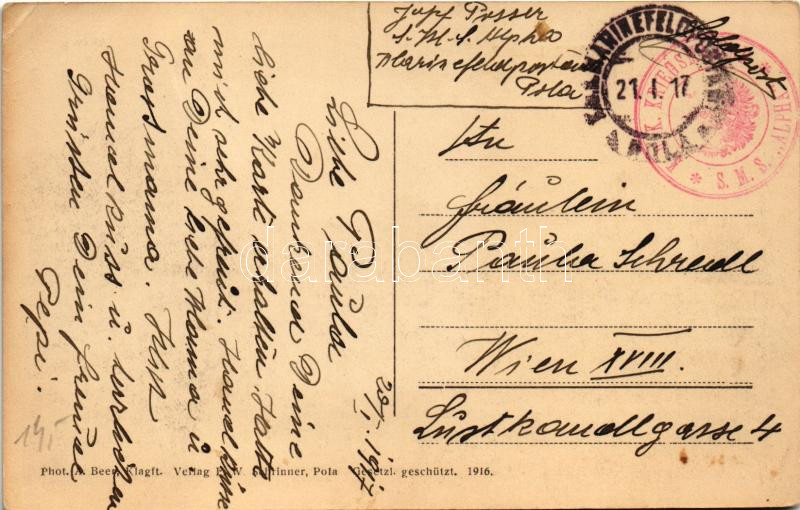 Josef Posser
S.M.S. Alpha
Marinefeldpostamt
Pola
Feldpost
K.u.K. MARINEFELDPOSTAMT
21. I. 17
POLA
K.u.K. KRIEGSMARINE
* S.M.S. "ALPHA"
An
Fräulein
Paula Schredl
Wien XVIII.
Lustkandlgasse 4
20/I. 1917
Liebe Paula
Dankend Deine
liebe Karte erhalten. Hat
mich sehr gefreut. Handküsse
an Deine liebe Mama u.
Grossmama. Herz
Handkuss u. herzlichen
Grüssen Dein
Pepi.
14,-
Phot. A. Beer, Klagft. Verlag F. W. Schrinner, Pola Gesetzl. geschützt. 1916.
darabanth